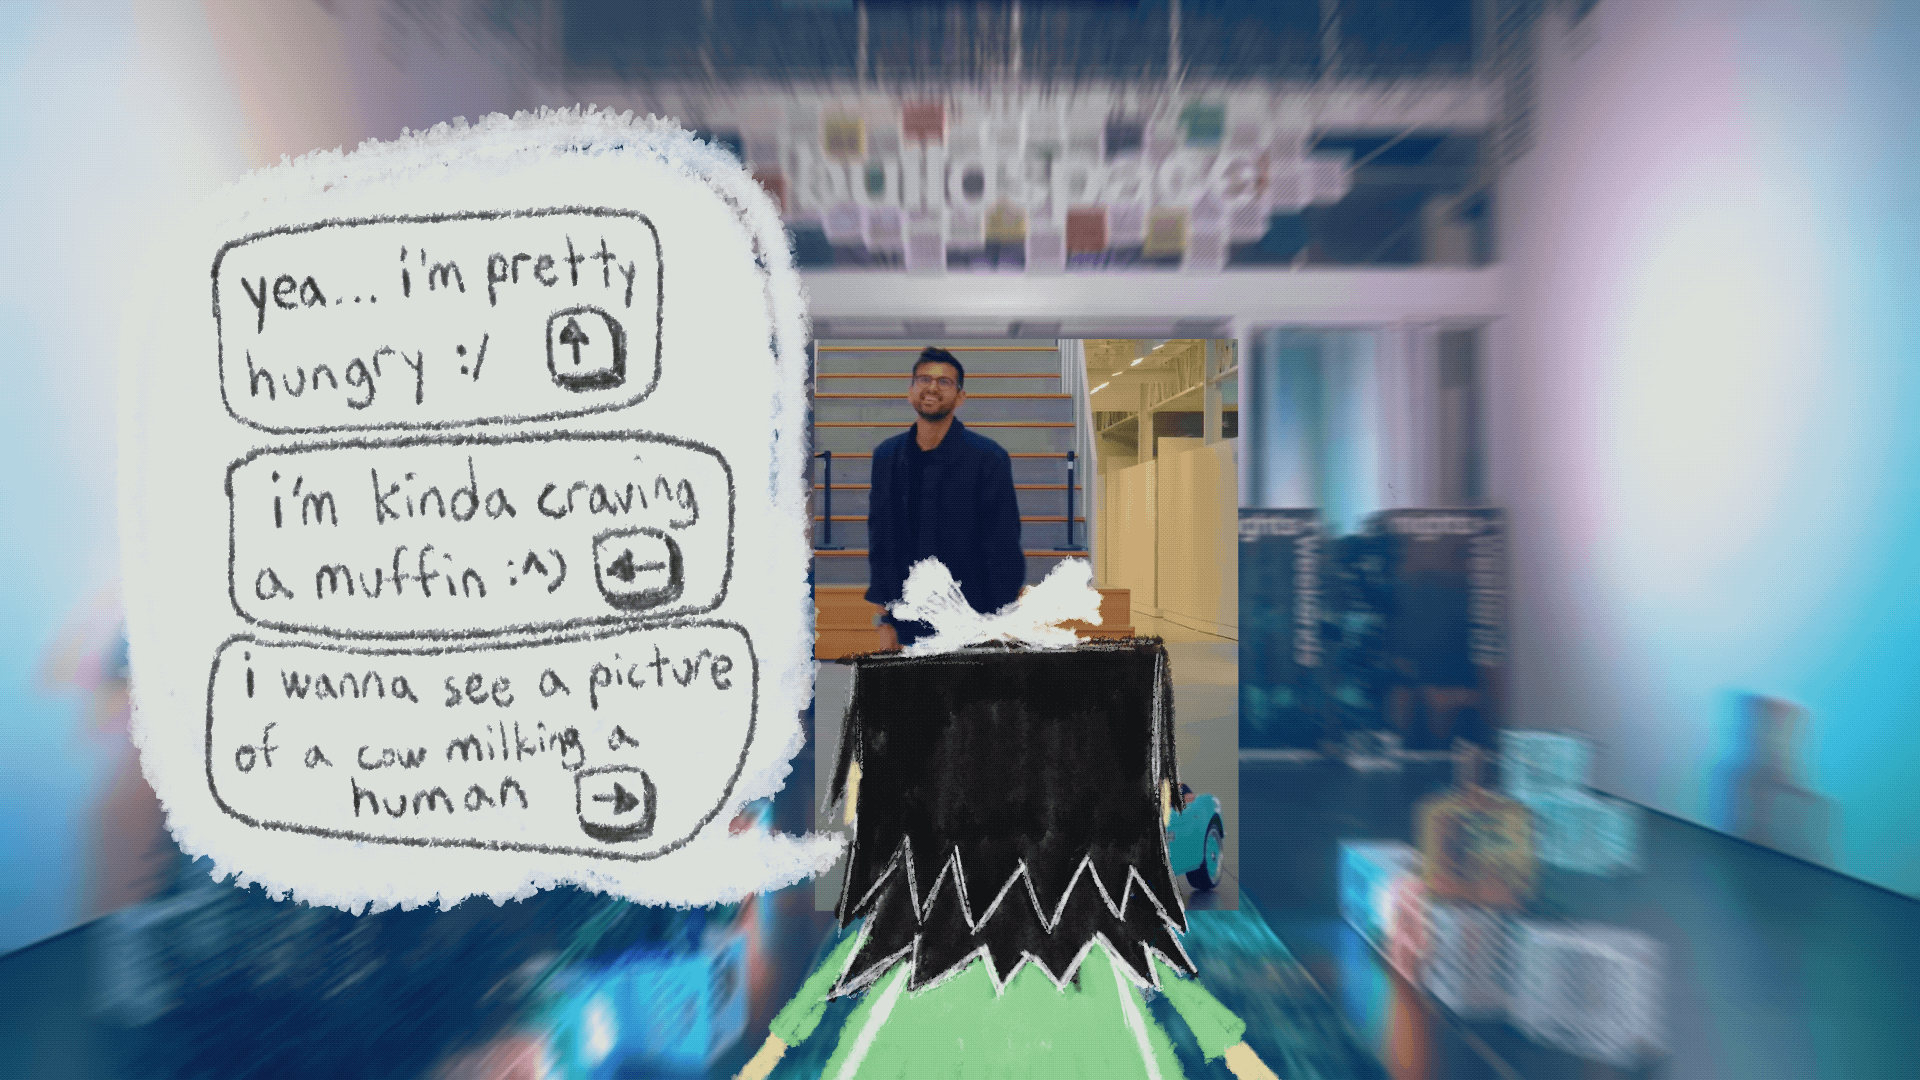 buildspace
yea... i'm pretty
hungry :/ ↑
i'm kinda craving
a muffin :^) ←
i wanna see a picture
of a cow milking a
human →